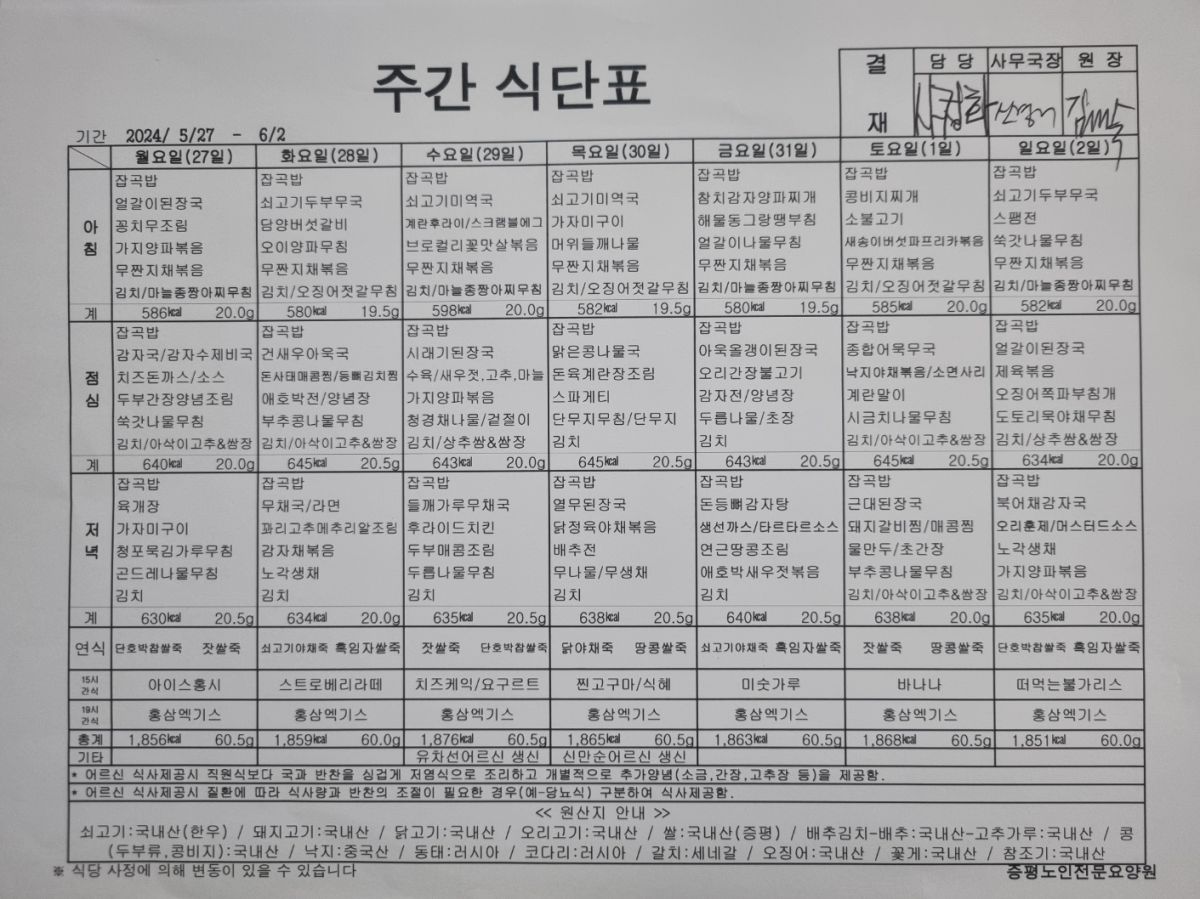 주간 식단표
결재 담 당 사무국장 원 장
기간 2024/ 5/27 - 6/2
월요일(27일) 화요일(28일) 수요일(29일) 목요일(30일) 금요일(31일) 토요일(1일) 일요일(2일)
아침
잡곡밥 잡곡밥 잡곡밥 잡곡밥 잡곡밥 잡곡밥 잡곡밥
얼갈이된장국 쇠고기두부무국 쇠고기미역국 쇠고기미역국 참치감자양파찌개 콩비지찌개 쇠고기두부무국
꽁치무조림 담양버섯갈비 계란후라이/스크램블에그 가자미구이 해물동그랑땡부침 소불고기 스팸전
가지양파볶음 오이양파무침 브로컬리꽃맛살볶음 머위들깨나물 얼갈이나물무침 새송이버섯파프리카볶음 쑥갓나물무침
무짠지채볶음 무짠지채볶음 무짠지채볶음 무짠지채볶음 무짠지채볶음 무짠지채볶음 무짠지채볶음
김치/마늘종짱아찌무침 김치/오징어젓갈무침 김치/마늘종짱아찌무침 김치/오징어젓갈무침 김치/마늘종짱아찌무침 김치/오징어젓갈무침 김치/마늘종짱아찌무침
계 586㎉ 20.0g 580㎉ 19.5g 598㎉ 20.0g 582㎉ 19.5g 580㎉ 19.5g 585㎉ 20.0g 582㎉ 20.0g
점심
잡곡밥 잡곡밥 잡곡밥 잡곡밥 잡곡밥 잡곡밥 잡곡밥
감자국/감자수제비국 건새우아욱국 시래기된장국 맑은콩나물국 아욱올갱이된장국 종합어묵무국 얼갈이된장국
치즈돈까스/소스 돈사태매콤찜/등뼈김치찜 수육/새우젓,고추,마늘 돈육계란장조림 오리간장불고기 낙지야채볶음/소면사리 제육볶음
두부간장양념조림 애호박전/양념장 가지양파볶음 스파게티 감자전/양념장 계란말이 오징어쪽파부침개
쑥갓나물무침 부추콩나물무침 청경채나물/겉절이 단무지무침/단무지 두릅나물/초장 시금치나물무침 도토리묵야채무침
김치/아삭이고추&쌈장 김치/아삭이고추&쌈장 김치/상추쌈&쌈장 김치 김치 김치/아삭이고추&쌈장 김치/상추쌈&쌈장
계 640㎉ 20.0g 645㎉ 20.5g 643㎉ 20.0g 645㎉ 20.5g 643㎉ 20.5g 645㎉ 20.5g 634㎉ 20.0g
저녁
잡곡밥 잡곡밥 잡곡밥 잡곡밥 잡곡밥 잡곡밥 잡곡밥
육개장 무채국/라면 들깨가루무채국 열무된장국 돈등뼈감자탕 근대된장국 북어채감자국
가자미구이 꽈리고추메추리알조림 후라이드치킨 닭정육야채볶음 생선까스/타르타르소스 돼지갈비찜/매콤찜 오리훈제/머스터드소스
청포묵김가루무침 감자채볶음 두부매콤조림 배추전 연근땅콩조림 물만두/초간장 노각생채
곤드레나물무침 노각생채 두릅나물무침 무나물/무생채 애호박새우젓볶음 부추콩나물무침 가지양파볶음
김치 김치 김치 김치 김치 김치/아삭이고추&쌈장 김치/아삭이고추&쌈장
계 630㎉ 20.5g 634㎉ 20.0g 635㎉ 20.5g 638㎉ 20.5g 640㎉ 20.5g 638㎉ 20.0g 635㎉ 20.0g
연식 단호박찹쌀죽 잣쌀죽 쇠고기야채죽 흑임자쌀죽 잣쌀죽 단호박찹쌀죽 닭야채죽 땅콩쌀죽 쇠고기야채죽 흑임자쌀죽 잣쌀죽 땅콩쌀죽 단호박찹쌀죽 흑임자쌀죽
15시 간식 아이스홍시 스트로베리라떼 치즈케익/요구르트 찐고구마/식혜 미숫가루 바나나 떠먹는불가리스
19시 간식 홍삼엑기스 홍삼엑기스 홍삼엑기스 홍삼엑기스 홍삼엑기스 홍삼엑기스 홍삼엑기스
총계 1,856㎉ 60.5g 1,859㎉ 60.0g 1,876㎉ 60.5g 1,865㎉ 60.5g 1,863㎉ 60.5g 1,868㎉ 60.5g 1,851㎉ 60.0g
기타 유차선어르신 생신 신만순어르신 생신
* 어르신 식사제공시 직원식보다 국과 반찬을 싱겁게 저염식으로 조리하고 개별적으로 추가양념(소금,간장,고추장 등)을 제공함.
* 어르신 식사제공시 질환에 따라 식사량과 반찬의 조절이 필요한 경우(예-당뇨식) 구분하여 식사제공함.
≪ 원산지 안내 ≫
쇠고기:국내산(한우) / 돼지고기:국내산 / 닭고기:국내산 / 오리고기:국내산 / 쌀:국내산(증평) / 배추김치-배추:국내산-고추가루:국내산 / 콩
(두부류,콩비지):국내산 / 낙지:중국산 / 동태:러시아 / 코다리:러시아 / 갈치:세네갈 / 오징어:국내산 / 꽃게:국내산 / 참조기:국내산
※ 식당 사정에 의해 변동이 있을 수 있습니다
증평노인전문요양원